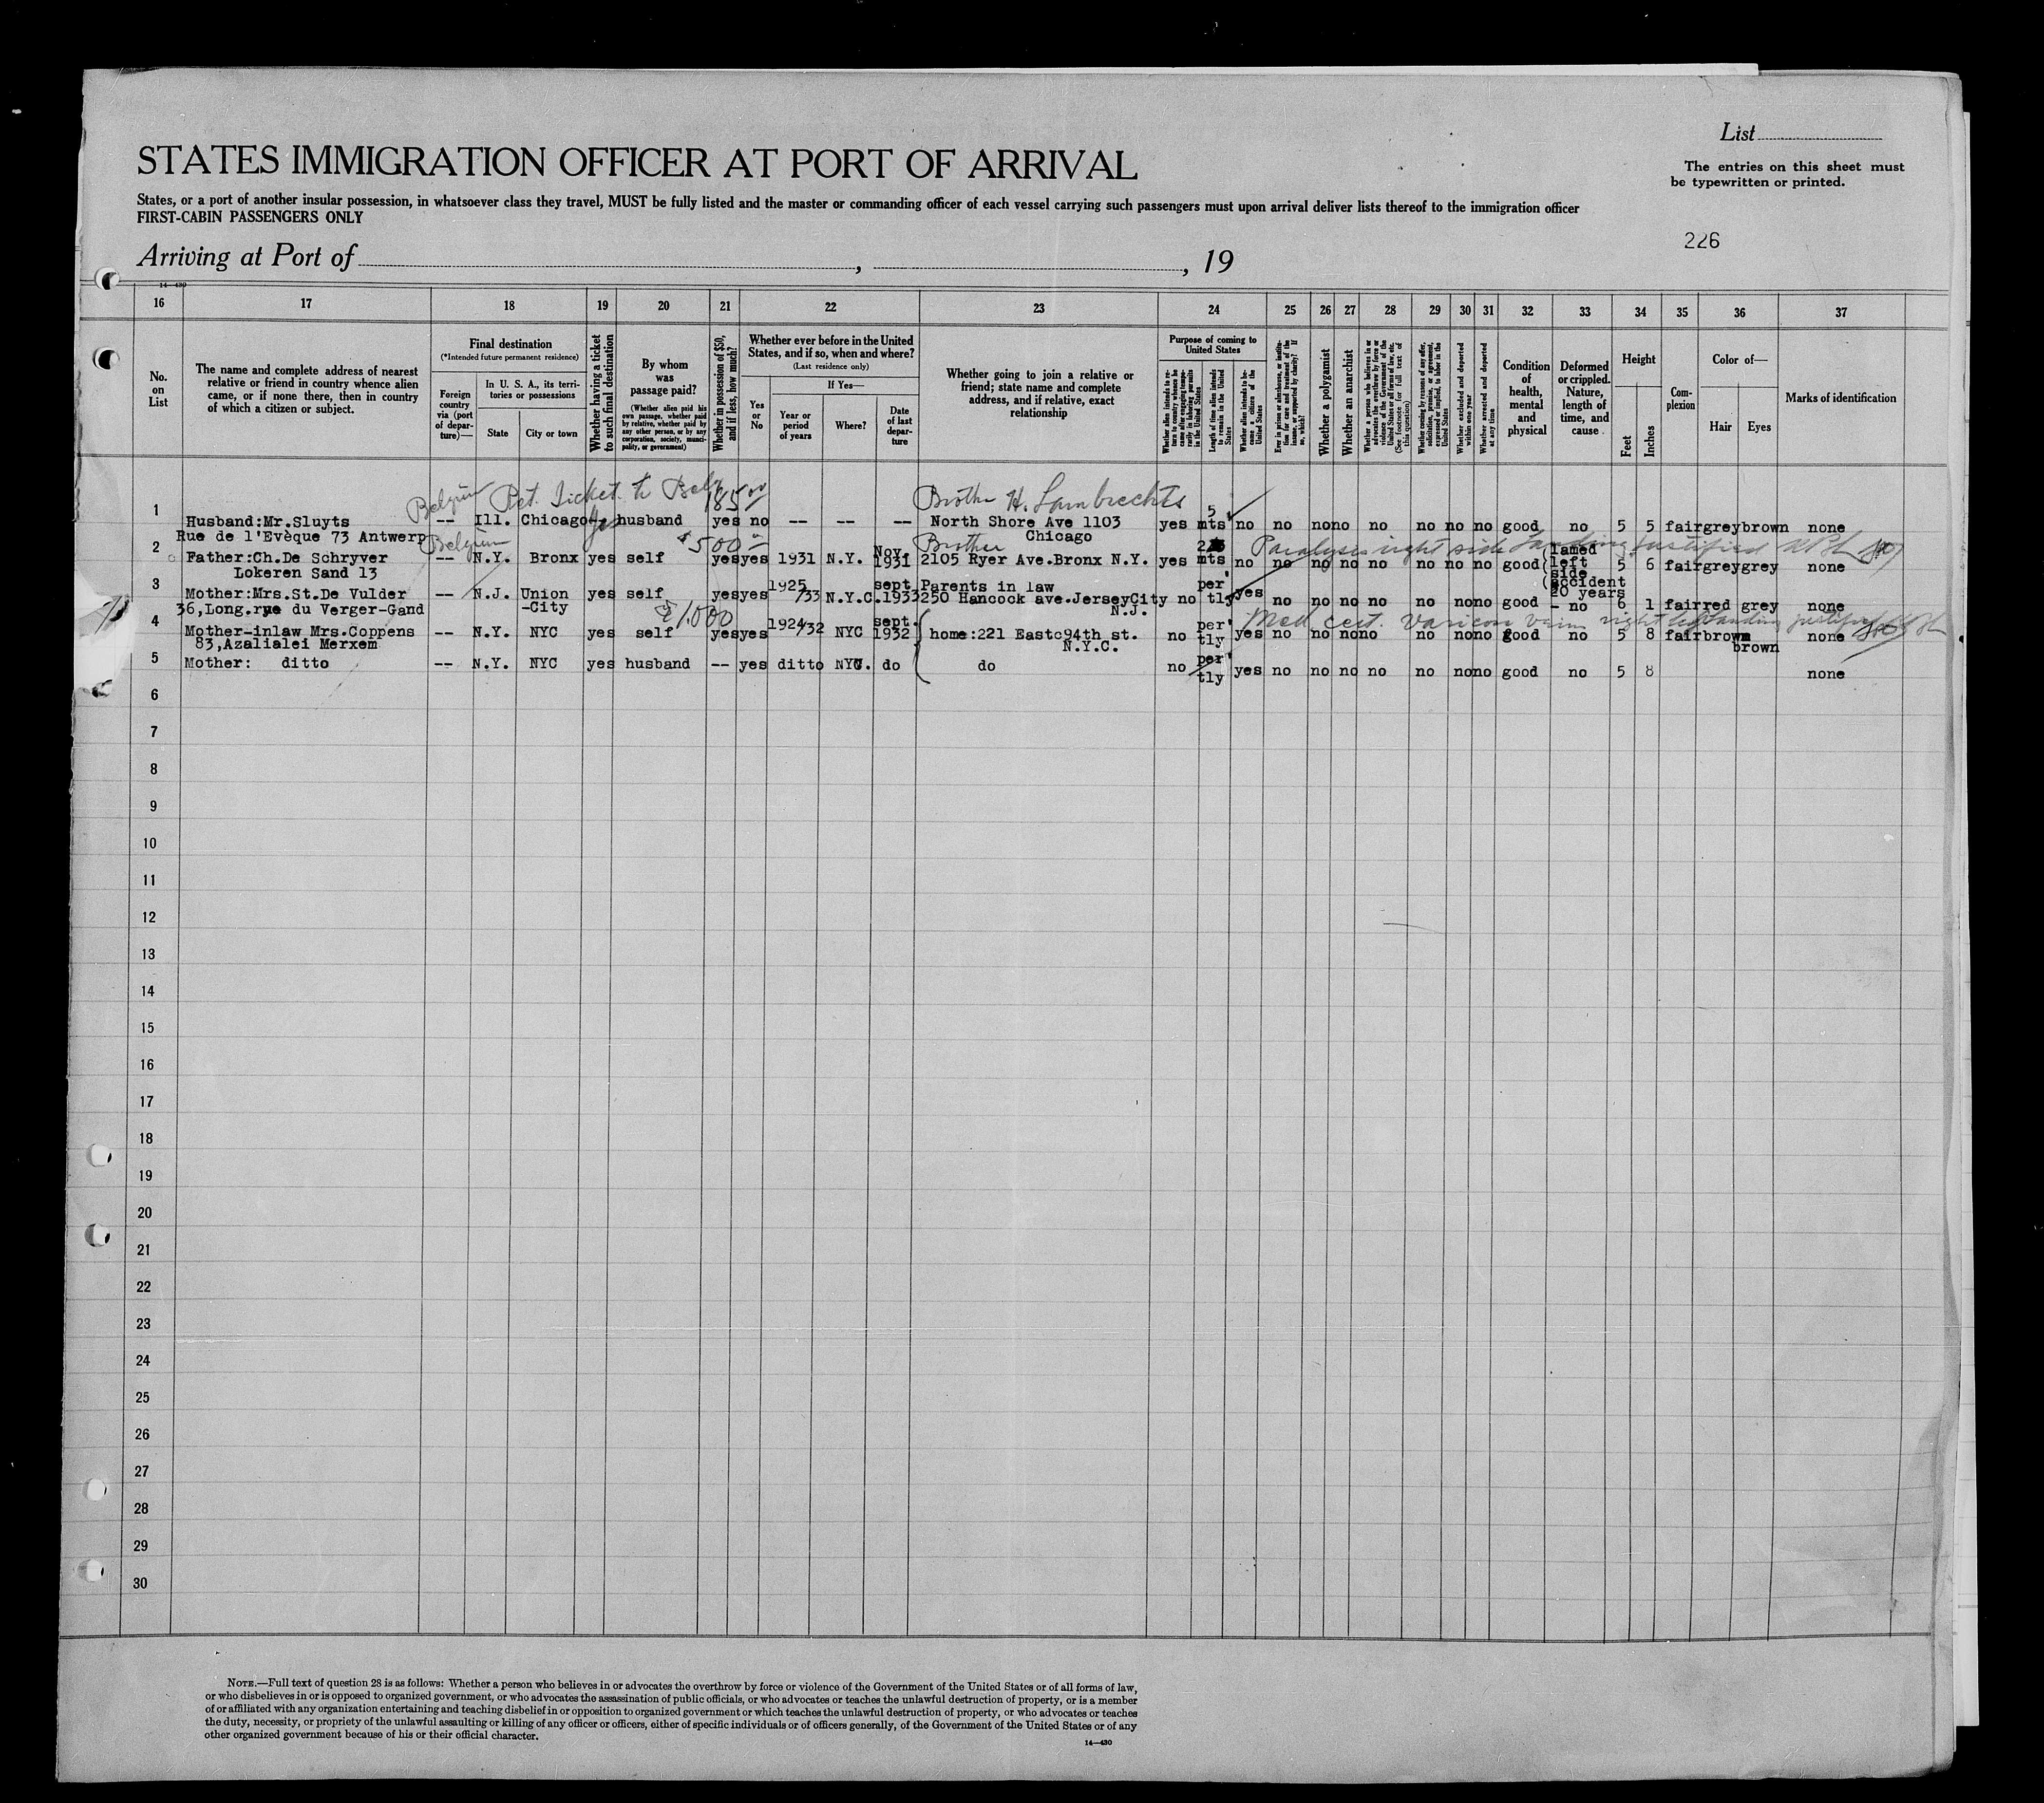 List
STATES IMMIGRATION OFFICER AT PORT OF ARRIVAL
The entries on this sheet must
be typewritten or printed.
States, or a port of another insular possession, in whatsoever class they travel, MUST be fully listed and the master or commanding officer of each vessel carrying such passengers must upon arrival deliver lists thereof to the immigration officer
FIRST-CABIN PASSENGERS ONLY
226
Arriving at Port of , , 19
14—430
16 17 18 19 20 21 22 23 24 25 26 27 28 29 30 31 32 33 34 35 36 37
No. on List
The name and complete address of nearest relative or friend in country whence alien came, or if none there, then in country of which a citizen or subject.
Final destination
(*Intended future permanent residence)
Foreign country via (port of departure)—
In U. S. A., its territories or possessions
State
City or town
Whether having a ticket to such final destination
By whom was passage paid?
(Whether alien paid his own passage, whether paid by relative, whether paid by any other person, or by any corporation, society, municipality, or government)
Whether in possession of $50, and if less, how much?
Whether ever before in the United States, and if so, when and where?
(Last residence only)
Yes or No
If Yes—
Year or period of years
Where?
Date of last departure
Whether going to join a relative or friend; state name and complete address, and if relative, exact relationship
Purpose of coming to United States
Whether alien intends to return to country whence he came after engaging temporarily in laboring pursuits in the United States
Length of time alien intends to remain in the United States
Whether alien intends to become a citizen of the United States
Ever in prison or almshouse, or institution for care and treatment of the insane, or supported by charity? If so, which?
Whether a polygamist
Whether an anarchist
Whether a person who believes in or advocates the overthrow by force or violence of the Government of the United States or all forms of law, etc. (See footnote for full text of this question)
Whether coming by reasons of any offer, solicitation, promise, or agreement, expressed or implied, to labor in the United States
Whether excluded and deported within one year
Whether arrested and deported at any time
Condition of health, mental and physical
Deformed or crippled. Nature, length of time, and cause
Height
Feet
Inches
Complexion
Color of—
Hair
Eyes
Marks of identification
Belgium Ret. Ticket to Belg 185 00 Brother H. Lambrechts 5
1 Husband:Mr.Sluyts -- Ill. Chicago yes husband yes no -- -- -- North Shore Ave 1103 yes mts no no no no no no no no good no 5 5 fair grey brown none
Rue de l'Evèque 73 Antwerp Chicago
Belgium $500 Brother Paralysis right side Landing justified
2 Father:Ch.De Schryver -- N.Y. Bronx yes self yes yes 1931 N.Y. Nov. 1931 2105 Ryer Ave.Bronx N.Y. yes mts no no no no no no no no good (lamed left side accident 20 years 5 6 fair grey grey none
Lokeren Sand 13
3 Mother:Mrs.St.De Vulder -- N.J. Union -City yes self yes yes 1925/33 N.Y.C. sept. 1933 Parents in law 250 Hancock ave.JerseyCity N.J. no per' tly yes no no no no no no no good - no 6 1 fair red grey none
36,Long.rue du Verger-Gand
1,000 Med cert. right landing justified
4 Mother-inlaw Mrs.Coppens -- N.Y. NYC yes self yes yes 1924/32 NYC sept. 1932 home:221 East 94th st. N.Y.C. no per' tly yes no no no no no no no good no 5 8 fair brown brown none
83,Azalialei Merxem
5 Mother: ditto -- N.Y. NYC yes husband -- yes ditto NYC. do do no per' tly yes no no no no no no no good no 5 8 none
6
7
8
9
10
11
12
13
14
15
16
17
18
19
20
21
22
23
24
25
26
27
28
29
30
NOTE.—Full text of question 28 is as follows: Whether a person who believes in or advocates the overthrow by force or violence of the Government of the United States or of all forms of law,
or who disbelieves in or is opposed to organized government, or who advocates the assassination of public officials, or who advocates or teaches the unlawful destruction of property, or is a member
of or affiliated with any organization entertaining and teaching disbelief in or opposition to organized government or which teaches the unlawful destruction of property, or who advocates or teaches
the duty, necessity, or propriety of the unlawful assaulting or killing of any officer or officers, either of specific individuals or of officers generally, of the Government of the United States or of any
other organized government because of his or their official character.
14—430